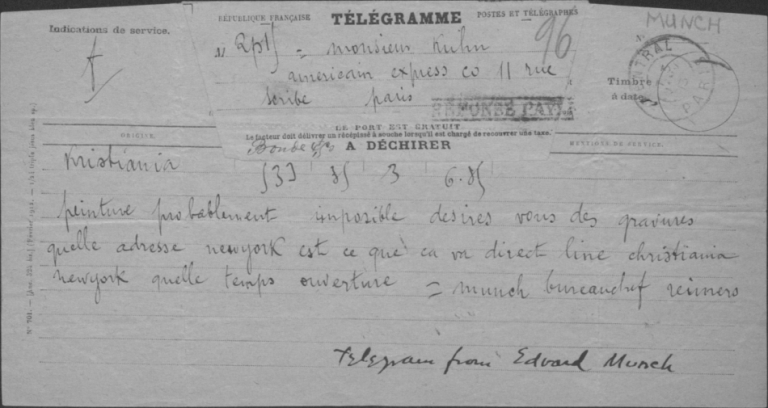 MUNCH
Indications de service.
RÉPUBLIQUE FRANÇAISE TÉLÉGRAMME POSTES ET TÉLÉGRAPHES
= monsieur Kuhn 96
americain express co 11 rue
scribe paris
RÉPONSE PAYÉE
Timbre
à date
CENTRAL
PARIS
LE PORT EST GRATUIT.
Le facteur doit délivrer un récépissé à souche lorsqu'il est chargé de recouvrer une taxe.
ORIGINE. A DÉCHIRER MENTIONS DE SERVICE.
Kristiania 533 85 3 6.85
peinture probablement imposible desires vous des gravures
quelle adresse newyork est ce que ca va direct line christiania
newyork quelle temps ouverture = munch bureauchef reiners
Telegram from Edvard Munch